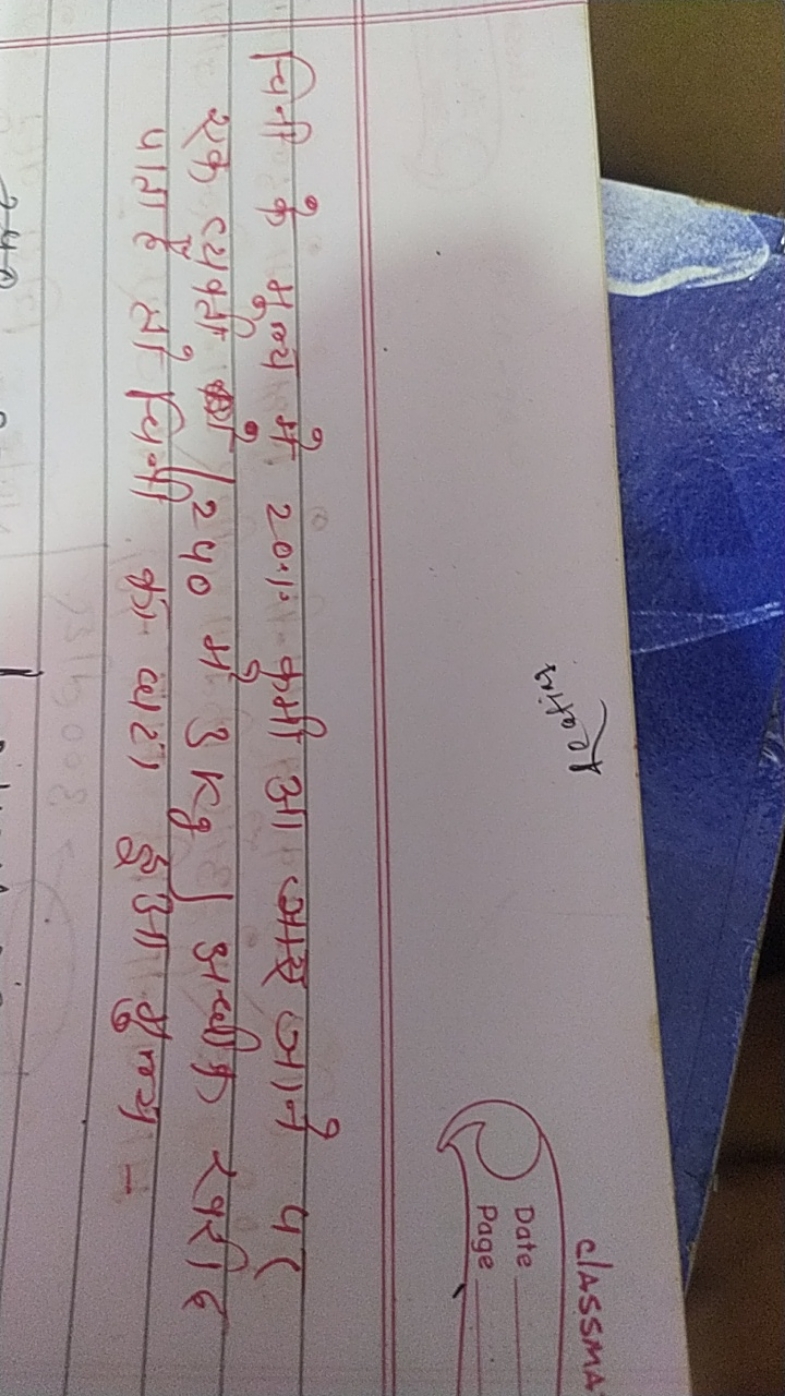 classma
Date
Page
चिनी के मुल्य में 20% कमी आ जाए जाने पर
एक व्यक्ती को /240 में 3 kg/ अधीक खरीद
पाता है तो चिनी का घटा हुआ मुल्य -
240